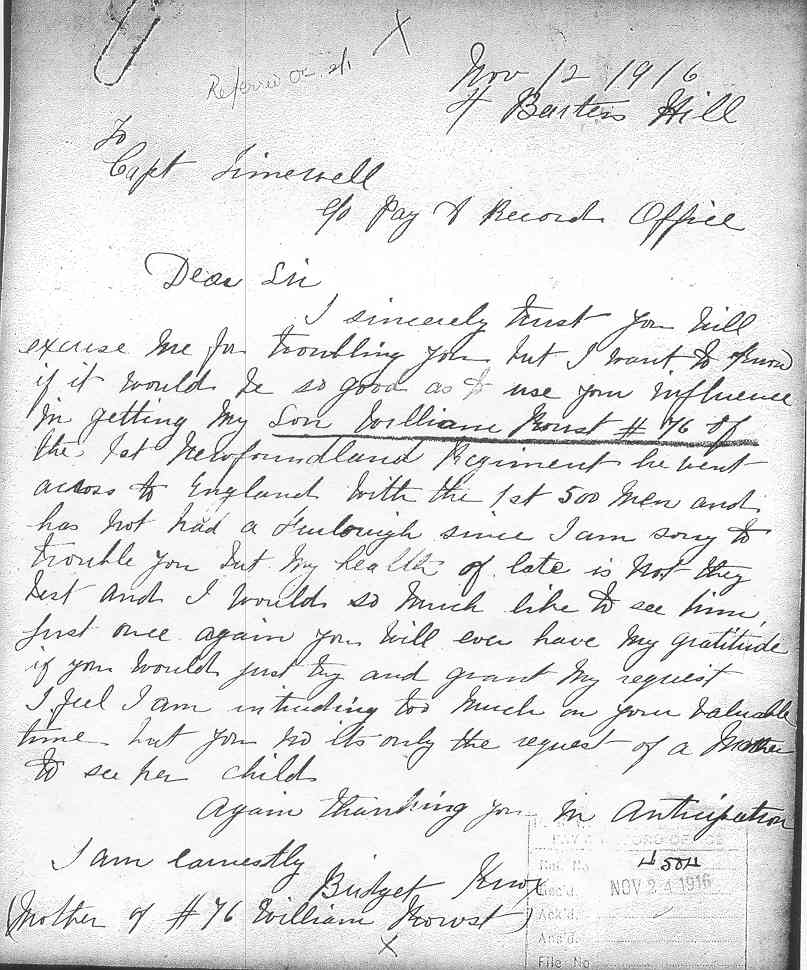 X
Referred
Nov 12 1916
4 Barters Hill
To
Capt Timewell
c/o Pay & Record Office
Dear Sir
I sincerely trust you will
excuse me for troubling you but I want to know
if it would be so good as to use your influence
in getting my Son William #76 of
the 1st Newfoundland Regiment he went
across to England with the 1st 500 men and
has not had a Furlough since I am sorry to
trouble you but my health of late is not they
best and I would so much like to see him,
just once again you will ever have my gratitude
if you would just try and grant my request
I feel I am intruding too much on your valuable
time but you no its only the request of a Mother
to see her child
Again thanking you in Anticipation
I am earnestly
Bridget
(Mother of #76 William)
X
PAY & RECORD OFFICE
Ref. No 4504
Rec'd. NOV 24 1916
Ack'd.
Ans'd.
File No